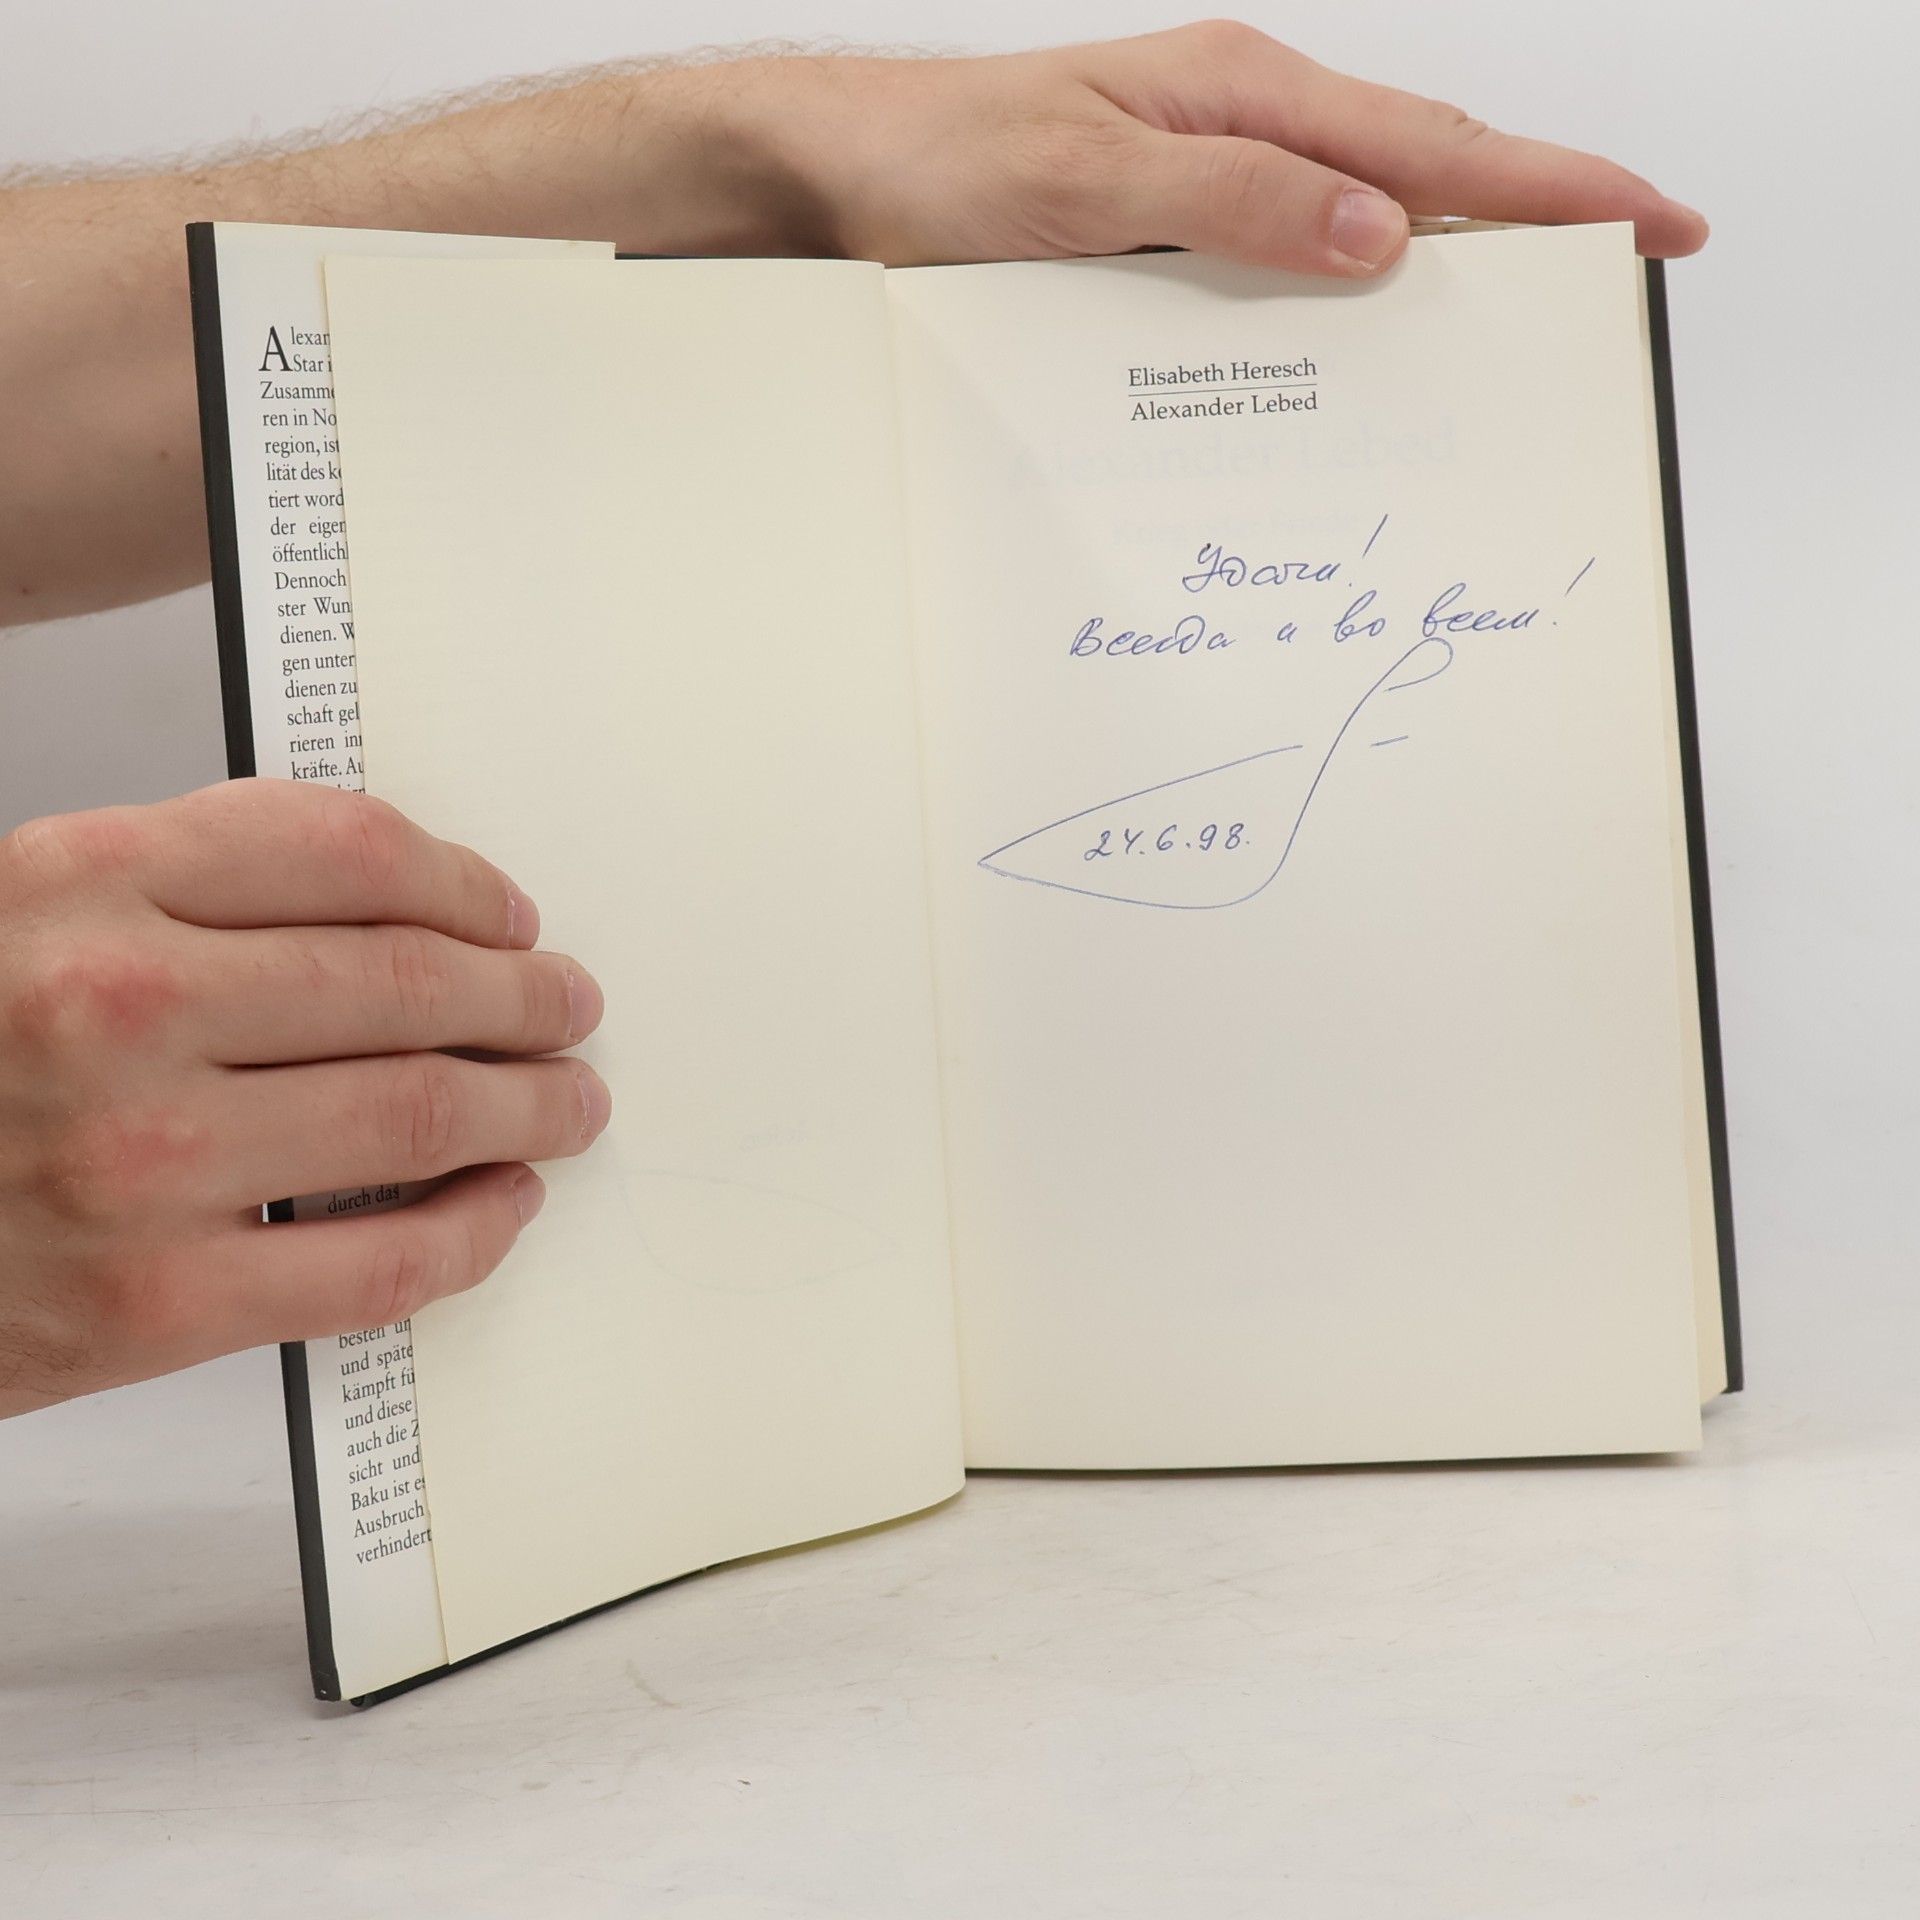 Alexan
Star i
Zusamme
ren in No
region, ist
lität des k
tiert word
der eigen
öffentlich
Dennoch
ster Wun
dienen. W
gen unter
dienen zu
schaft gel
rieren inn
kräfte. Au
durch das
besten un
und späte
kämpft fü
und diese
auch die Z
sicht und
Baku ist es
Ausbruch
verhindert
Elisabeth Heresch
Alexander Lebed
Удачи!
Всегда и во всем!
24.6.98.